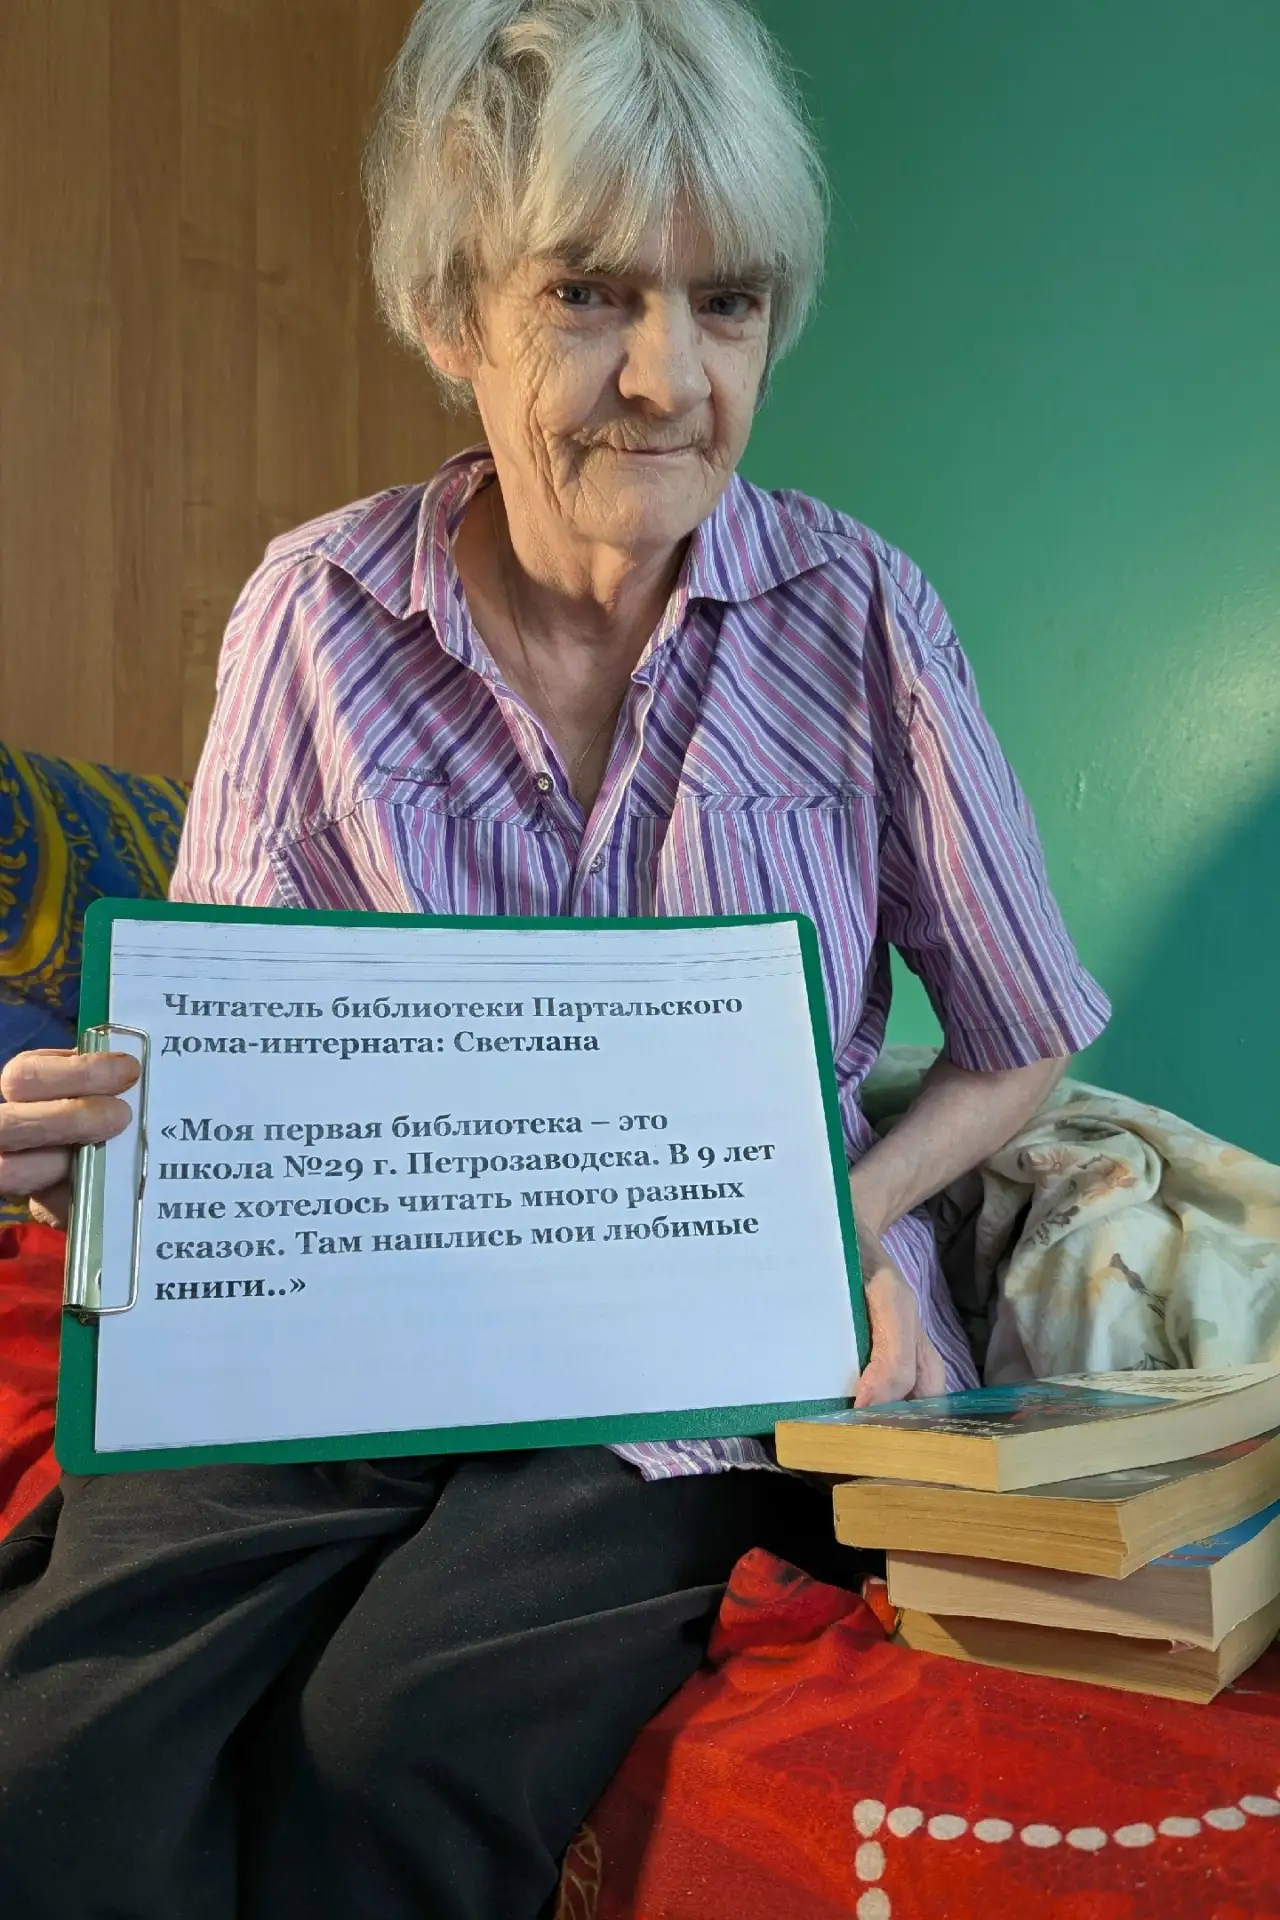 Читатель библиотеки Партальского
дома-интерната: Светлана
«Моя первая библиотека – это
школа №29 г. Петрозаводска. В 9 лет
мне хотелось читать много разных
сказок. Там нашлись мои любимые
книги..»